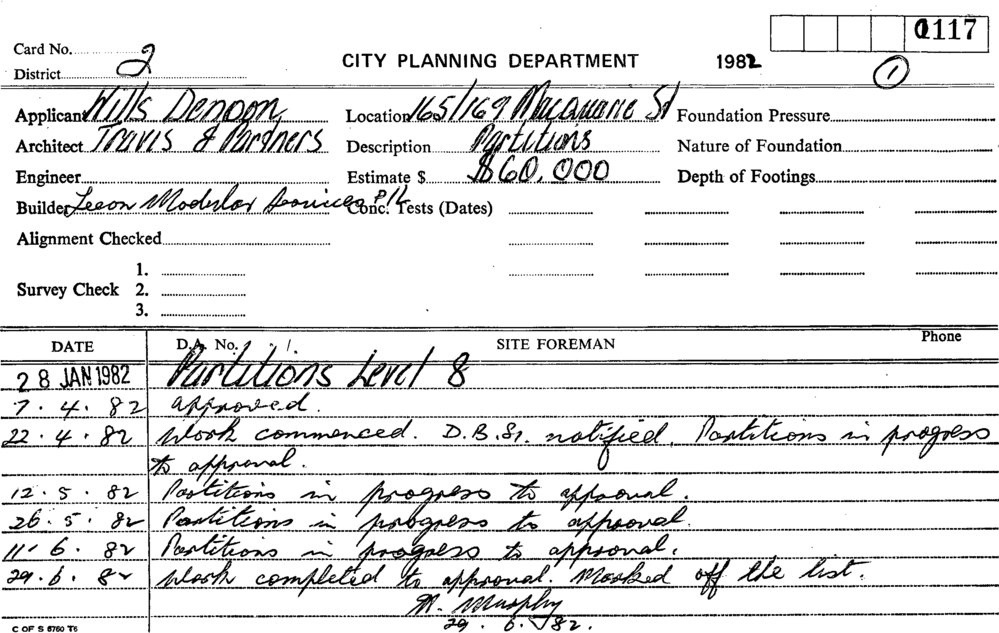 0117
Card No. 2
District
CITY PLANNING DEPARTMENT
1982
1
Applicant Wills Denoon
Location 165/169 Macquarie St
Foundation Pressure
Architect Travis & Partners
Description Partitions
Nature of Foundation
Engineer
Estimate $ $60,000
Depth of Footings
Builder Leeon Modular Services P/L
Conc. Tests (Dates)
Alignment Checked
1.
Survey Check 2.
3.
DATE D.A. No. SITE FOREMAN Phone
28 JAN 1982 Partitions Level 8
7.4.82 approved.
22.4.82 Work commenced. D.B.S. notified. Partitions in progress
to approval.
12.5.82 Partitions in progress to approval.
26.5.82 Partitions in progress to approval.
11.6.82 Partitions in progress to approval.
29.6.82 Work completed to approval. Marked off the list.
Murphy
29.6.82.
C OF S 6760 T6